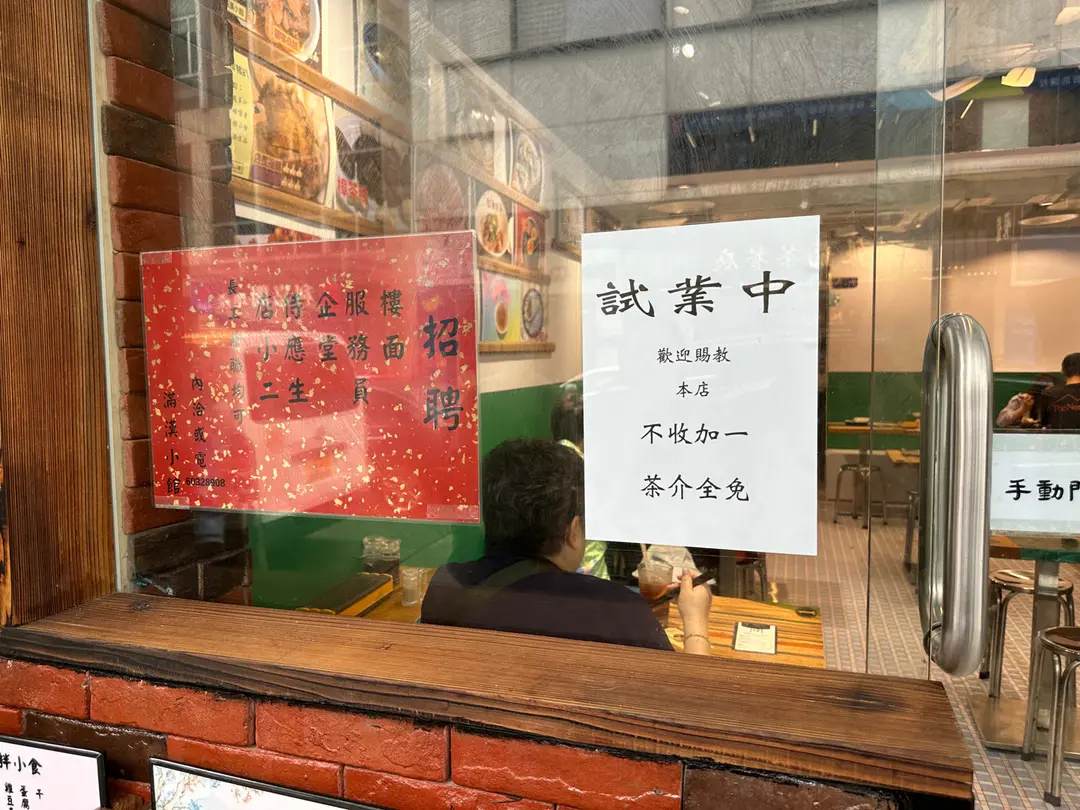 招聘
樓面
服務員
企堂
侍應生
店小二
職均可
內洽或電
60328908
滿漢小館
試業中
歡迎賜教
本店
不收加一
茶介全免
手動門
小食